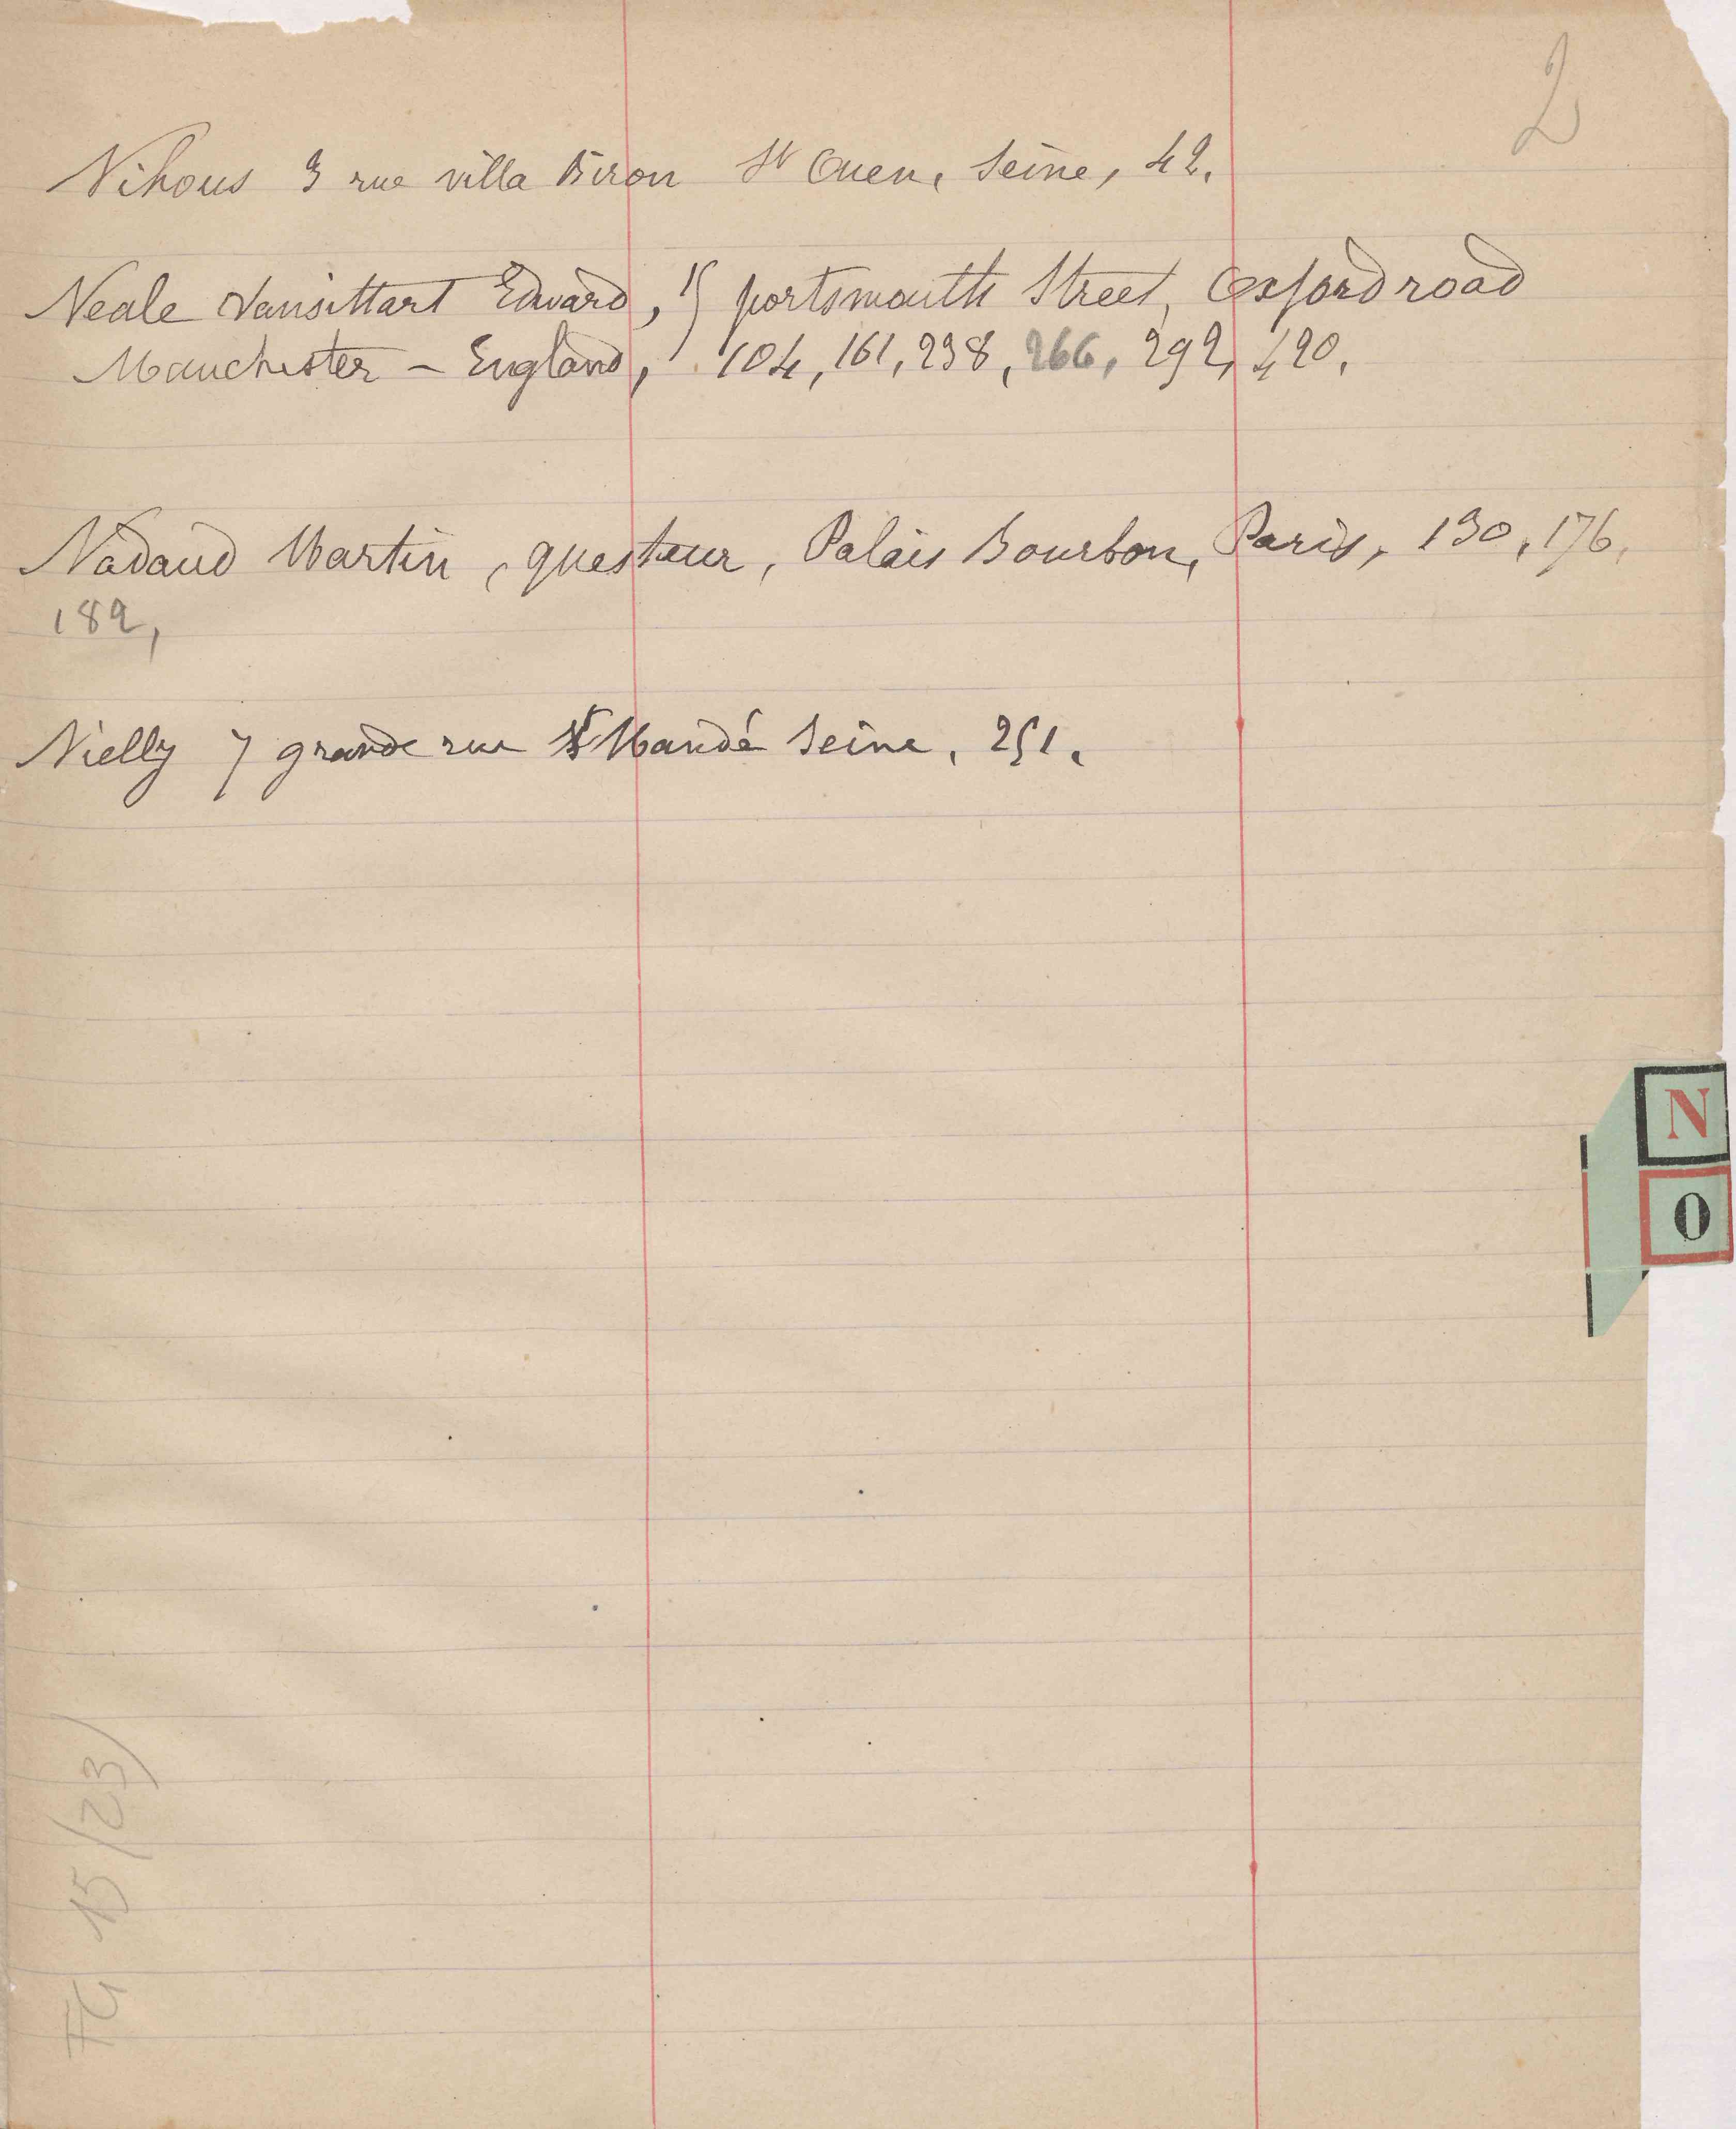 2
Nihous 3 rue villa Biron St Ouen, Seine, 42.
Neale Vansittart Edward, 15 portsmouth Street, Oxford road
Manchester – England, 104, 161, 238, 266, 292, 420.
Nadaud Martin, questeur, Palais Bourbon, Paris, 130, 176,
182,
Nielly 7 grande rue St Mandé Seine, 251.
N
O
FG 15 (23)